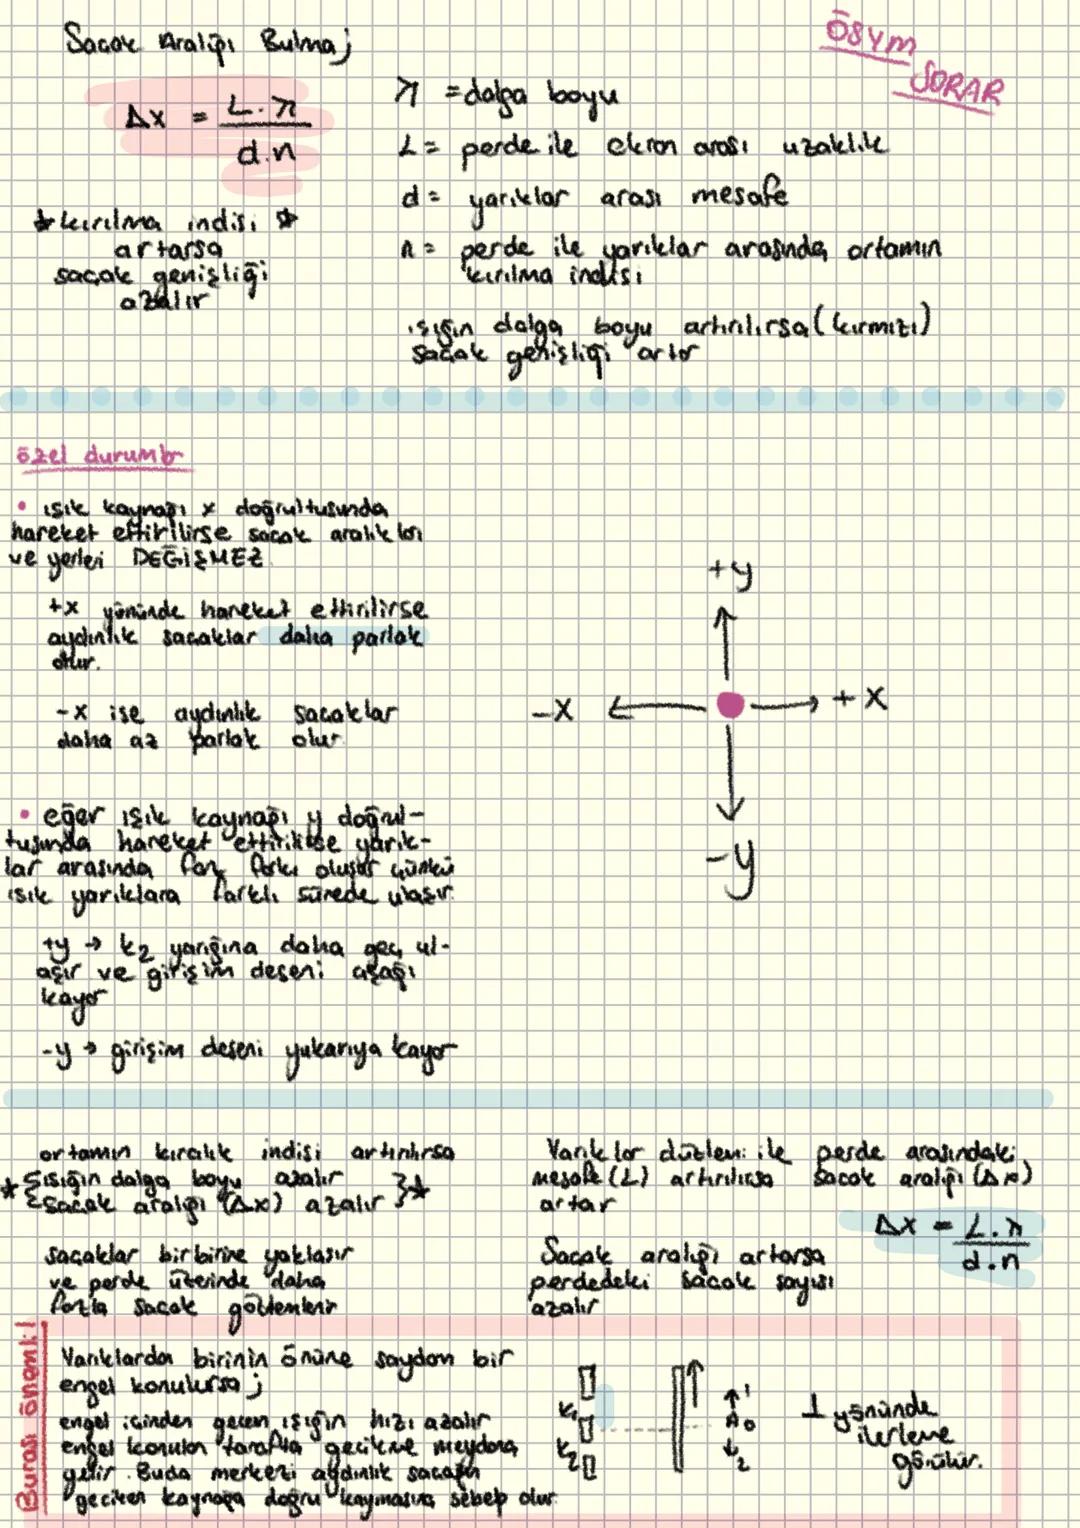 Saçak Aralığı Bulma;
ÖSYM
SORAR
Δx = L.λ / d.n
λ = dalga boyu
L = perde ile ekran arası uzaklık
d = yarıklar arası mesafe
n = perde ile yarıklar arasında ortamın
kırılma indisi
* kırılma indisi *
artarsa
saçak genişliği
azalır
ışığın dalga boyu artırılırsa (kırmızı)
saçak genişliği artar
özel durumlar
• ışık kaynağı x doğrultusunda
hareket ettirilirse saçak aralıkları
ve yerleri DEĞİŞMEZ
+x yönünde hareket ettirilirse
aydınlık saçaklar daha parlak
olur.
-x ise aydınlık saçaklar
daha az parlak olur
+y
-x
+x
-y
• eğer ışık kaynağı y doğrul-
tusunda hareket ettirilirse yarık-
lar arasında faz farkı oluşur çünkü
ışık yarıklara farklı sürede ulaşır.
+y → k2 yarığına daha geç ul-
aşır ve girişim deseni aşağı
kayar
-y → girişim deseni yukarıya kayar
ortamın kırıcılık indisi artırılırsa
* {ışığın dalga boyu azalır
{saçak aralığı (Δx) azalır }*
saçaklar birbirine yaklaşır
ve perde üzerinde daha
fazla saçak gözlemlenir
Yarıklar düzlemi ile perde arasındaki
mesafe (L) artırılırsa saçak aralığı (Δx)
artar
Δx = L.λ / d.n
Saçak aralığı artarsa
perdedeki saçak sayısı
azalır
Burası önemli!
Yarıklardan birinin önüne saydam bir
engel konulursa;
engel içinden geçen ışığın hızı azalır
engel konulan tarafta gecikme meydana
gelir. Buda merkezi aydınlık saçağın
geciken kaynağa doğru kaymasına sebep olur
K1
K2
1
A0
2
1 yönünde
ilerleme
görülür.